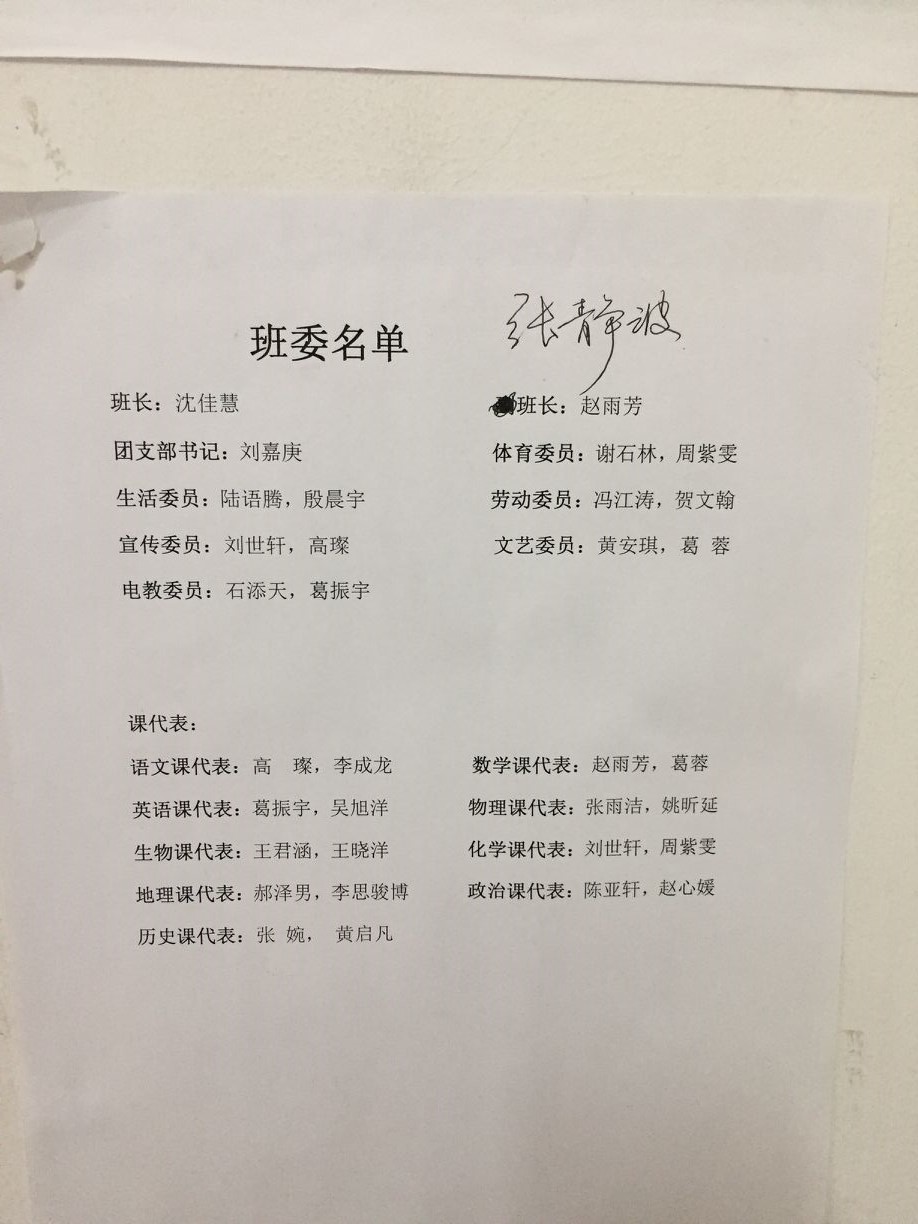 班委名单 张静波
班长：沈佳慧 班长：赵雨芳
团支部书记：刘嘉庚 体育委员：谢石林，周紫雯
生活委员：陆语腾，殷晨宇 劳动委员：冯江涛，贺文翰
宣传委员：刘世轩，高璨 文艺委员：黄安琪，葛 蓉
电教委员：石添天，葛振宇
课代表：
语文课代表：高 璨，李成龙 数学课代表：赵雨芳，葛蓉
英语课代表：葛振宇，吴旭洋 物理课代表：张雨洁，姚昕延
生物课代表：王君涵，王晓洋 化学课代表：刘世轩，周紫雯
地理课代表：郝泽男，李思骏博 政治课代表：陈亚轩，赵心媛
历史课代表：张 婉， 黄启凡